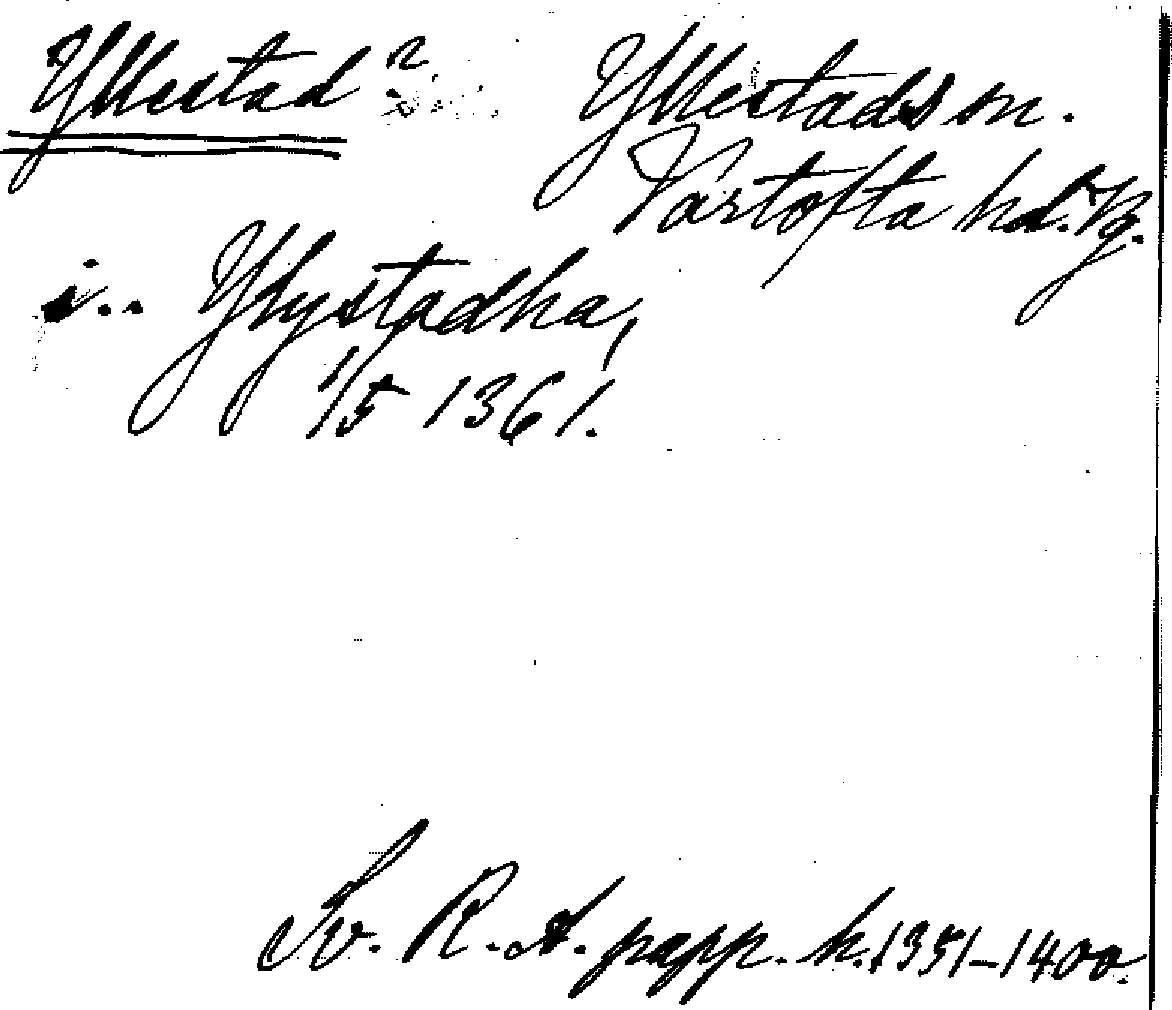 Yllestad n Yllestads sn.
Vartofta hd. Vg.
i.. Ylystadha,
1/5 1361.
Sv. R. A. papp. h. 1351–1400.